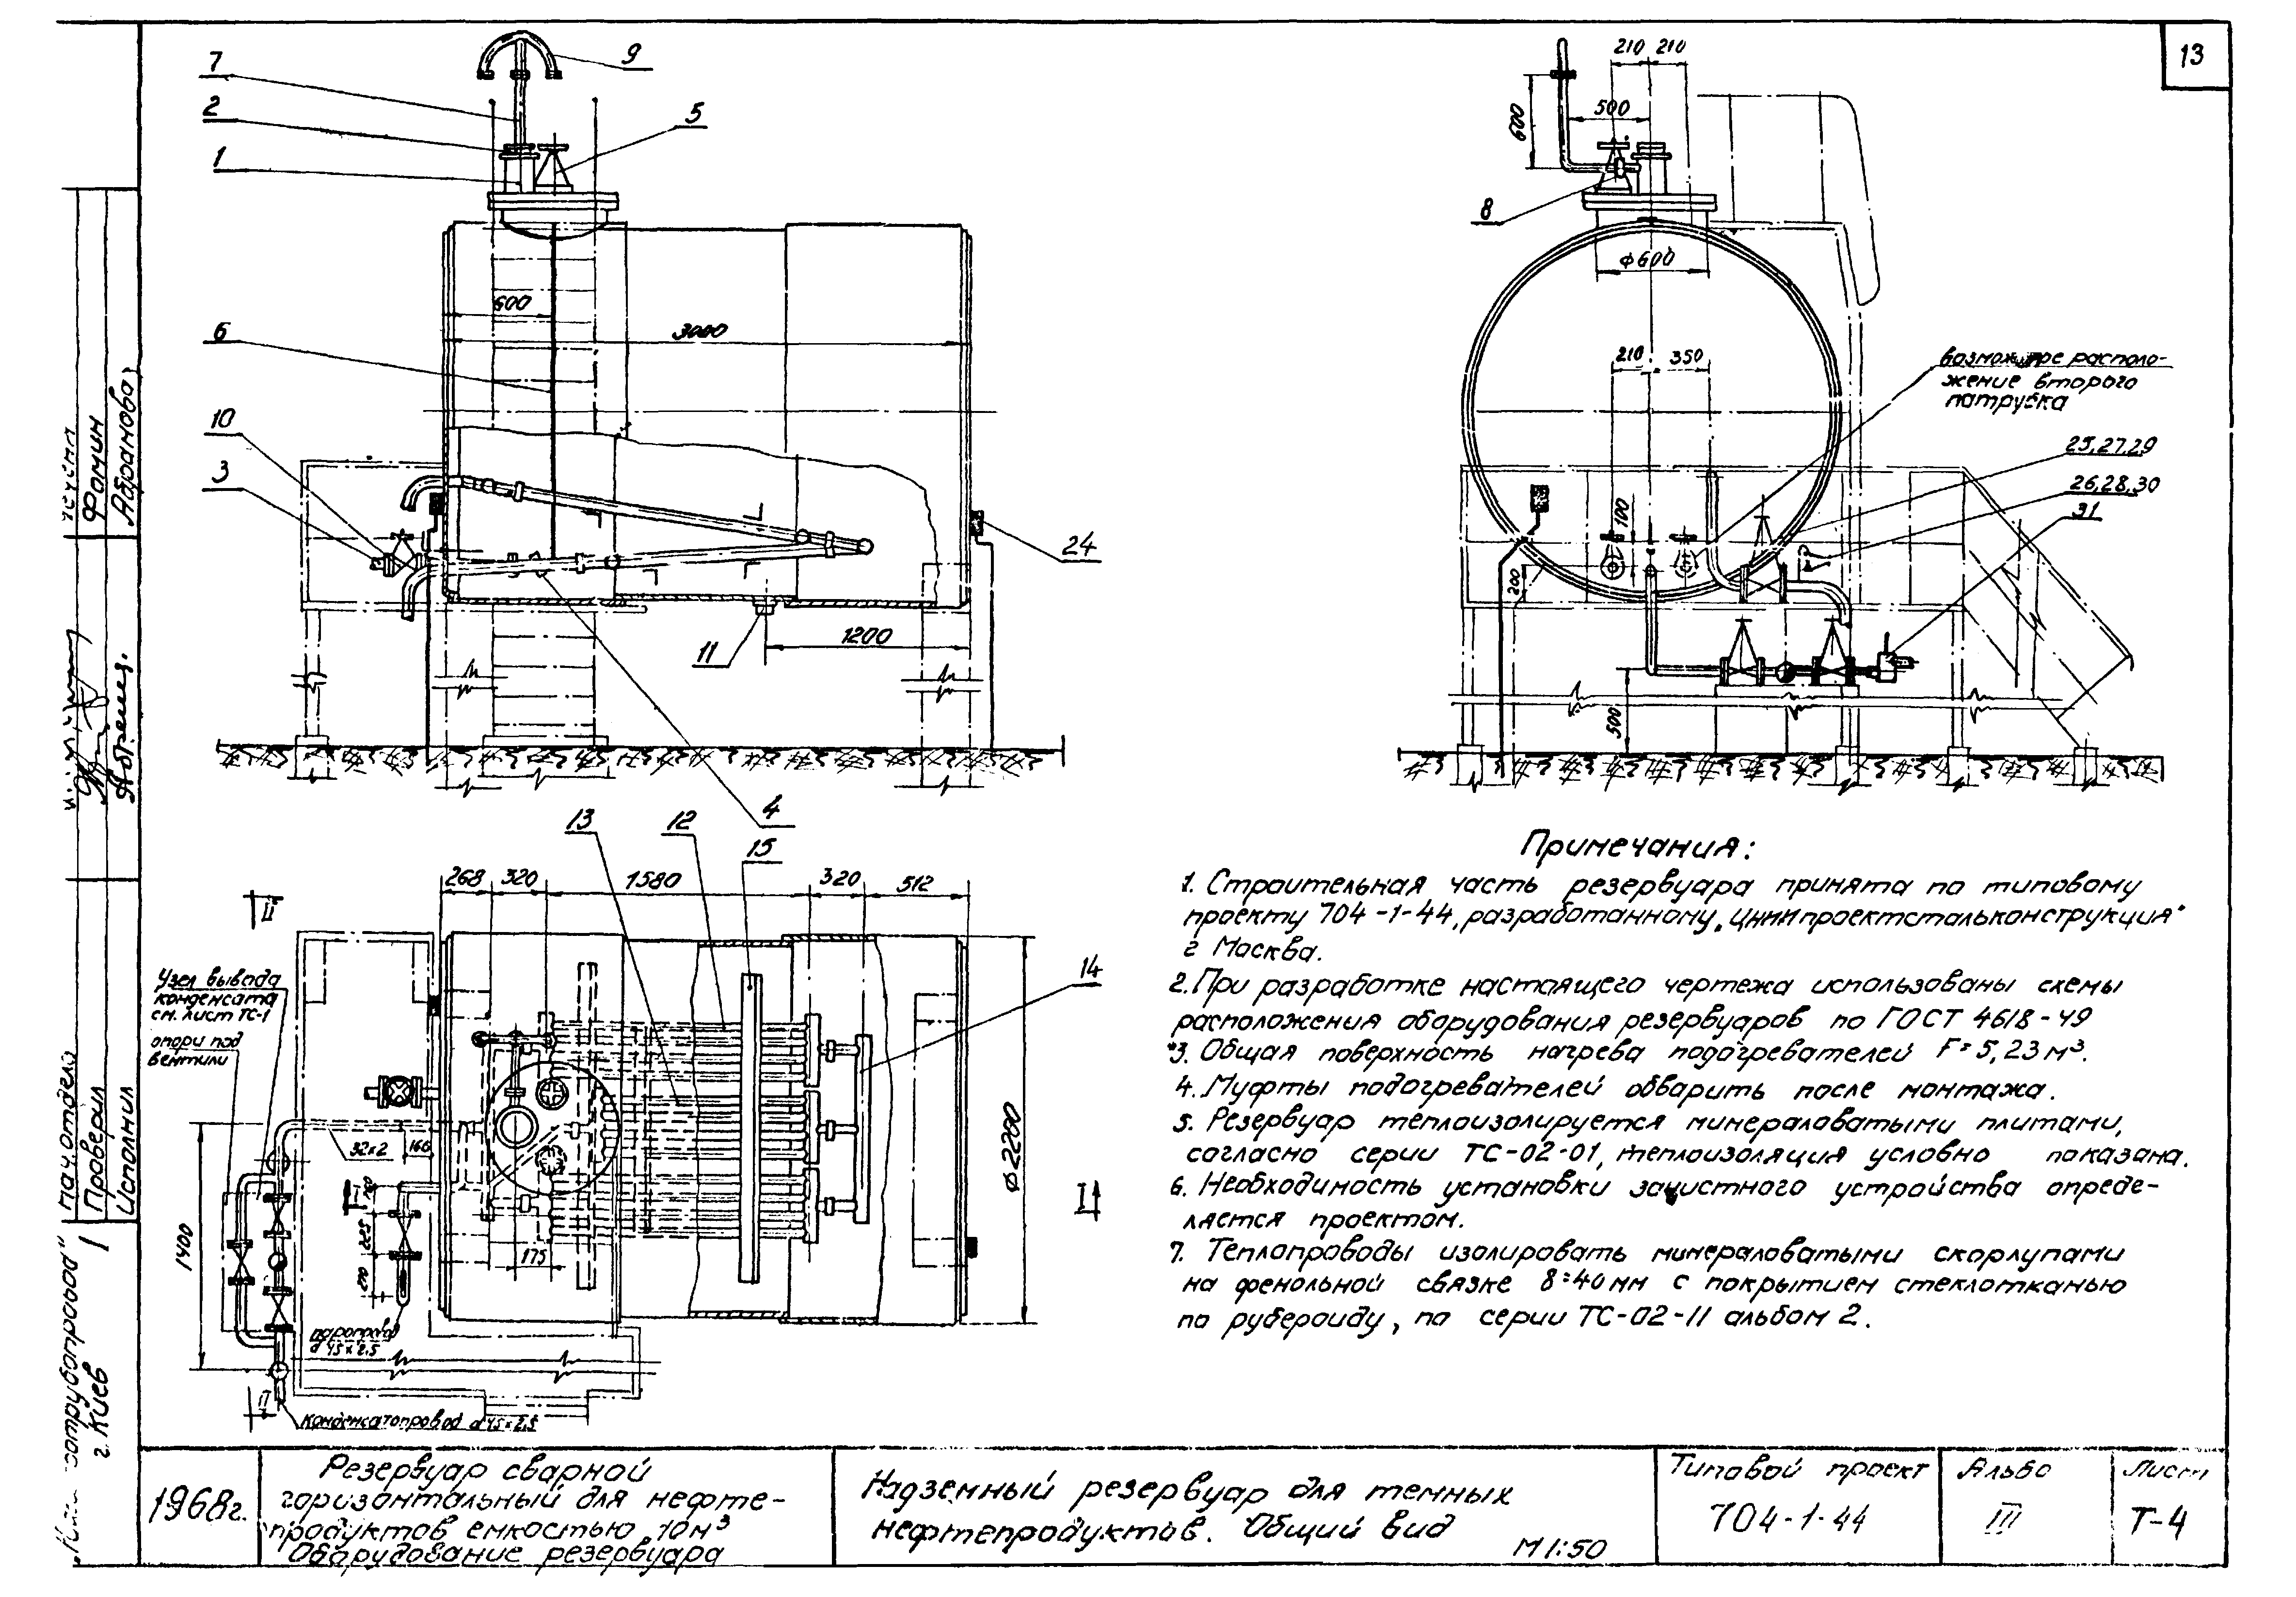 13
7
9
2
5
1
600
3000
6
10
3
24
11
1200
4
210 210
600
500
8
ф600
210 350
возможное располо-
жение второго
патрубка
25,27,29
26,28,30
31
100
200
500
13
12
15
268 320 1580 320 512
II
14
Узел вывода
конденсата
см. лист ТС-1
опори под
вентили
32х2
160
ф2200
I
1400
225
210
175
паропровод
d 45х2,5
II
Конденсатопровод d 45х2,5
Примечания:
1. Строительная часть резервуара принята по типовому
проекту 704-1-44, разработанному „ЦНИИпроектстальконструкция"
г Москва.
2. При разработке настоящего чертежа использованы схемы
расположения оборудования резервуаров по ГОСТ 4618-49
*3. Общая поверхность нагрева подогревателей F=5,23м³.
4. Муфты подогревателей обварить после монтажа.
5. Резервуар теплоизолируется минераловатыми плитами,
согласно серии ТС-02-01, теплоизоляция условно показана.
6. Необходимость установки зачистного устройства опреде-
ляется проектом.
7. Теплопроводы изолировать минераловатыми скорлупами
на фенольной связке δ=40мм с покрытием стеклотканью
по рубероиду, по серии ТС-02-11 альбом 2.
Фомин
Абрамова
Нач. отдела
Проверил
Исполнил
г. Киев
1968г.
Резервуар сварной
горизонтальный для нефте-
продуктов емкостью 10м³
Оборудование резервуара
Надземный резервуар для темных
нефтепродуктов. Общий вид
М 1:50
Типовой проект
704-1-44
Альбо
III
Лист
Т-4